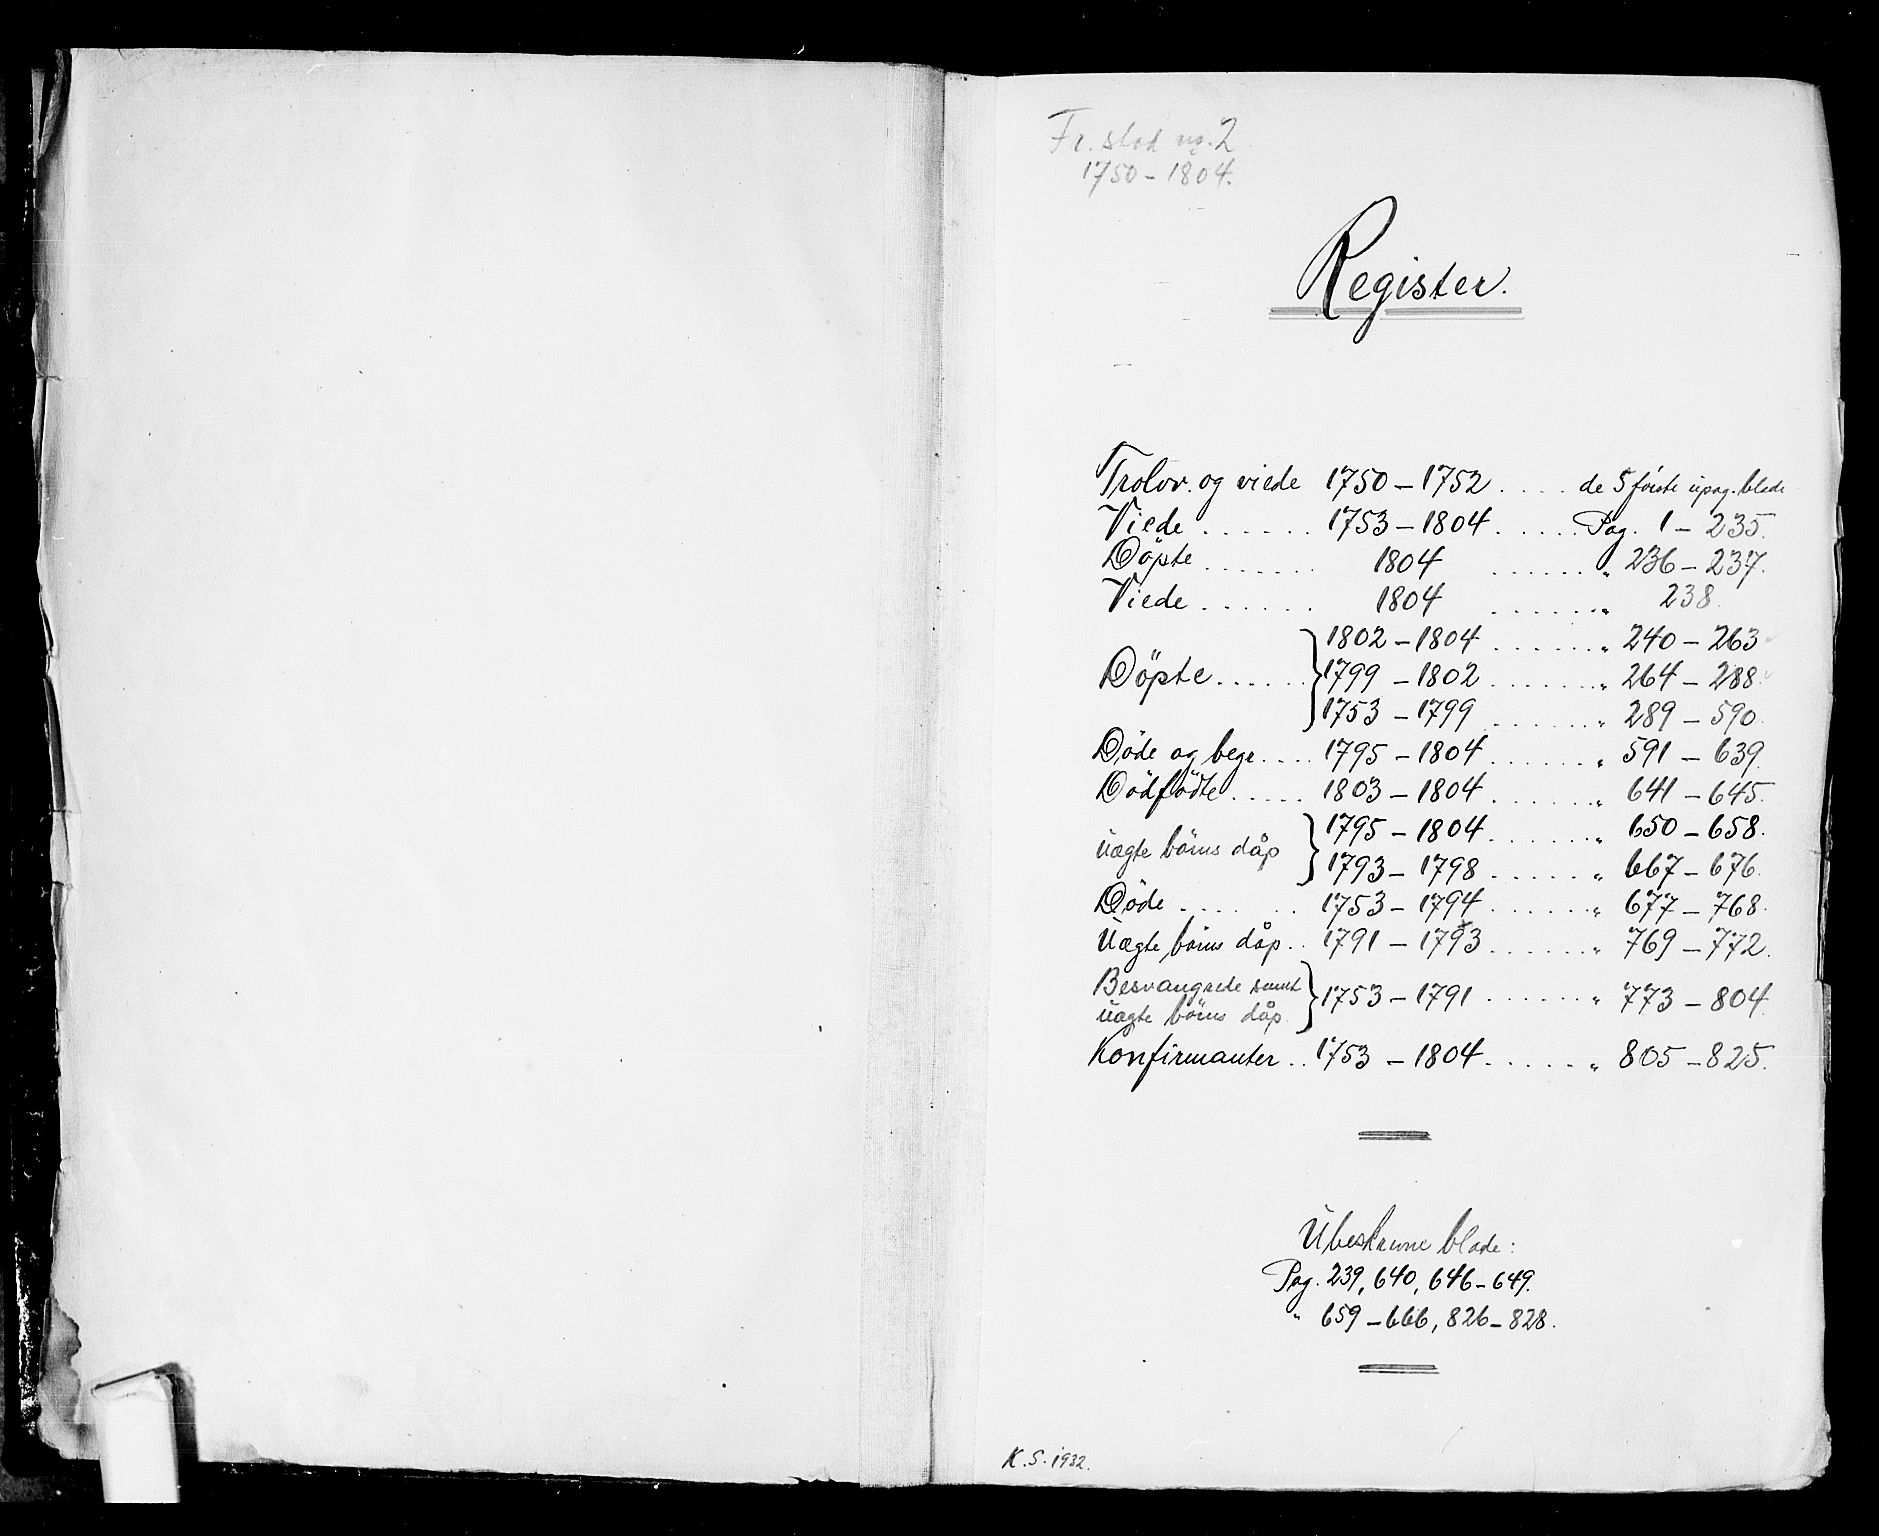 Fr. stad nr. 2.
1750 – 1804.
Register.
Trolov. og viede 1750 – 1752 . . . . de 5 første upag. blade
Viede . . . . . . 1753 – 1804 . . . . . Pag. 1 – 235.
Döpte . . . . . . 1804 . . . . . . „ 236 – 237.
Viede . . . . . . 1804 . . . . . . „ 238.
1802 – 1804 . . . . . . „ 240 – 263
Döpte . . . . . . } 1799 – 1802 . . . . . . „ 264 – 288.
1753 – 1799 . . . . . . „ 289 – 590.
Döde og begr. . . . 1795 – 1804 . . . . . . „ 591 – 639.
Dödfödte . . . . . 1803 – 1804 . . . . . . „ 641 – 645.
Uægte börns dåp } 1795 – 1804 . . . . . . „ 650 – 658.
1793 – 1798 . . . . . . „ 667 – 676.
Döde . . . . . . 1753 – 1794 . . . . . . „ 677 – 768.
Uægte börns dåp . . 1791 – 1793 . . . . . . „ 769 – 772.
Besvangrede samt
uægte börns dåp } 1753 – 1791 . . . . . . „ 773 – 804.
Konfirmanter . . 1753 – 1804 . . . . . . „ 805 – 825.
Ubeskrevne blade:
Pag. 239, 640, 646 – 649.
„ 659 – 666, 826 – 828.
K. S. 1932.